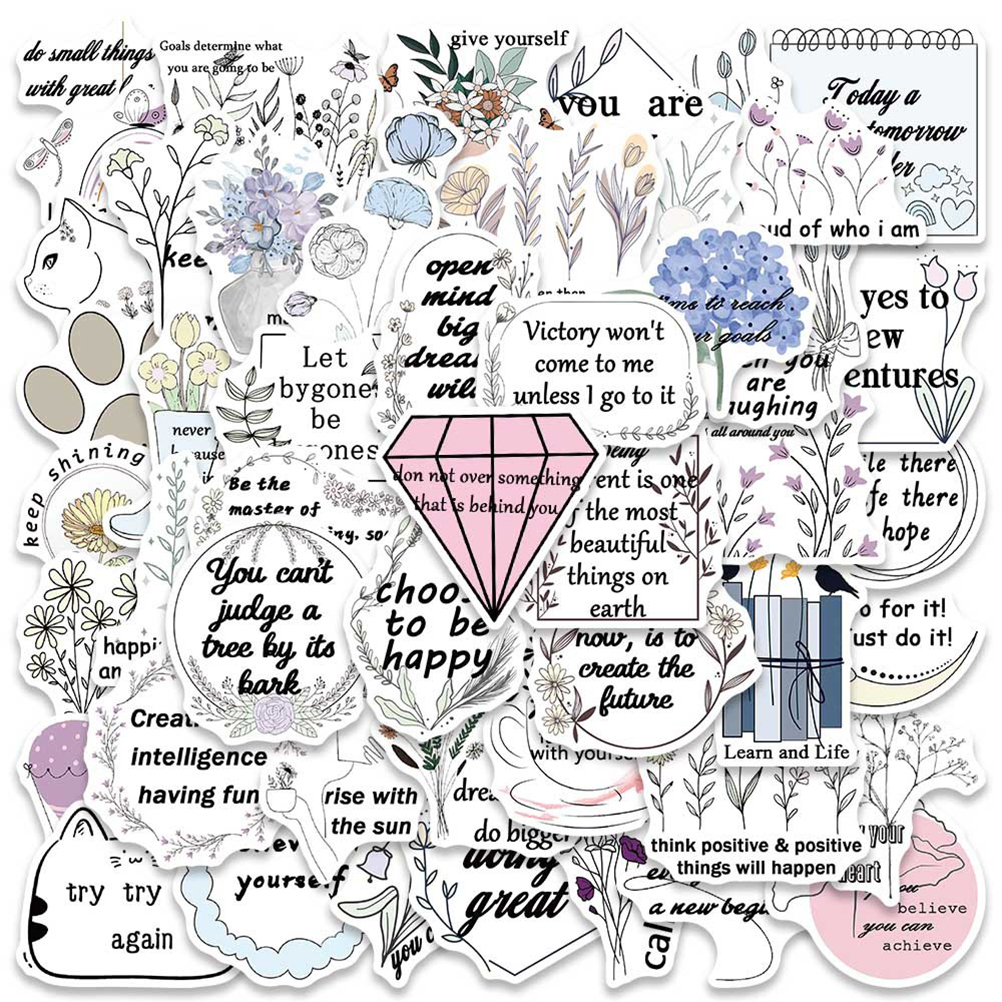 do small things
with great
Goals determine what
you are going to be
give yourself
you are
Today a
tomorrow
proud of who i am
open
mind
big
dreams
wild
Victory won't
come to me
unless I go to it
time to reach
your goals
yes to
new
adventures
Let
bygones
be
bygones
never
because
you
are
laughing
all around you
keep shining
Be the
master of
don not over something
that is behind you
being
different is one
of the most
beautiful
things on
earth
there
life there
hope
You can't
judge a
tree by its
bark
choose
to be
happy
now, is to
create the
future
go for it!
Just do it!
Learn and Life
happi
an
Creat
intelligence
having fun
rise with
the sun
with yourself
do bigger
doing
great
think positive & positive
things will happen
your
heart
try try
again
yourself
you c
a new begin
cal
you
believe
you can
achieve